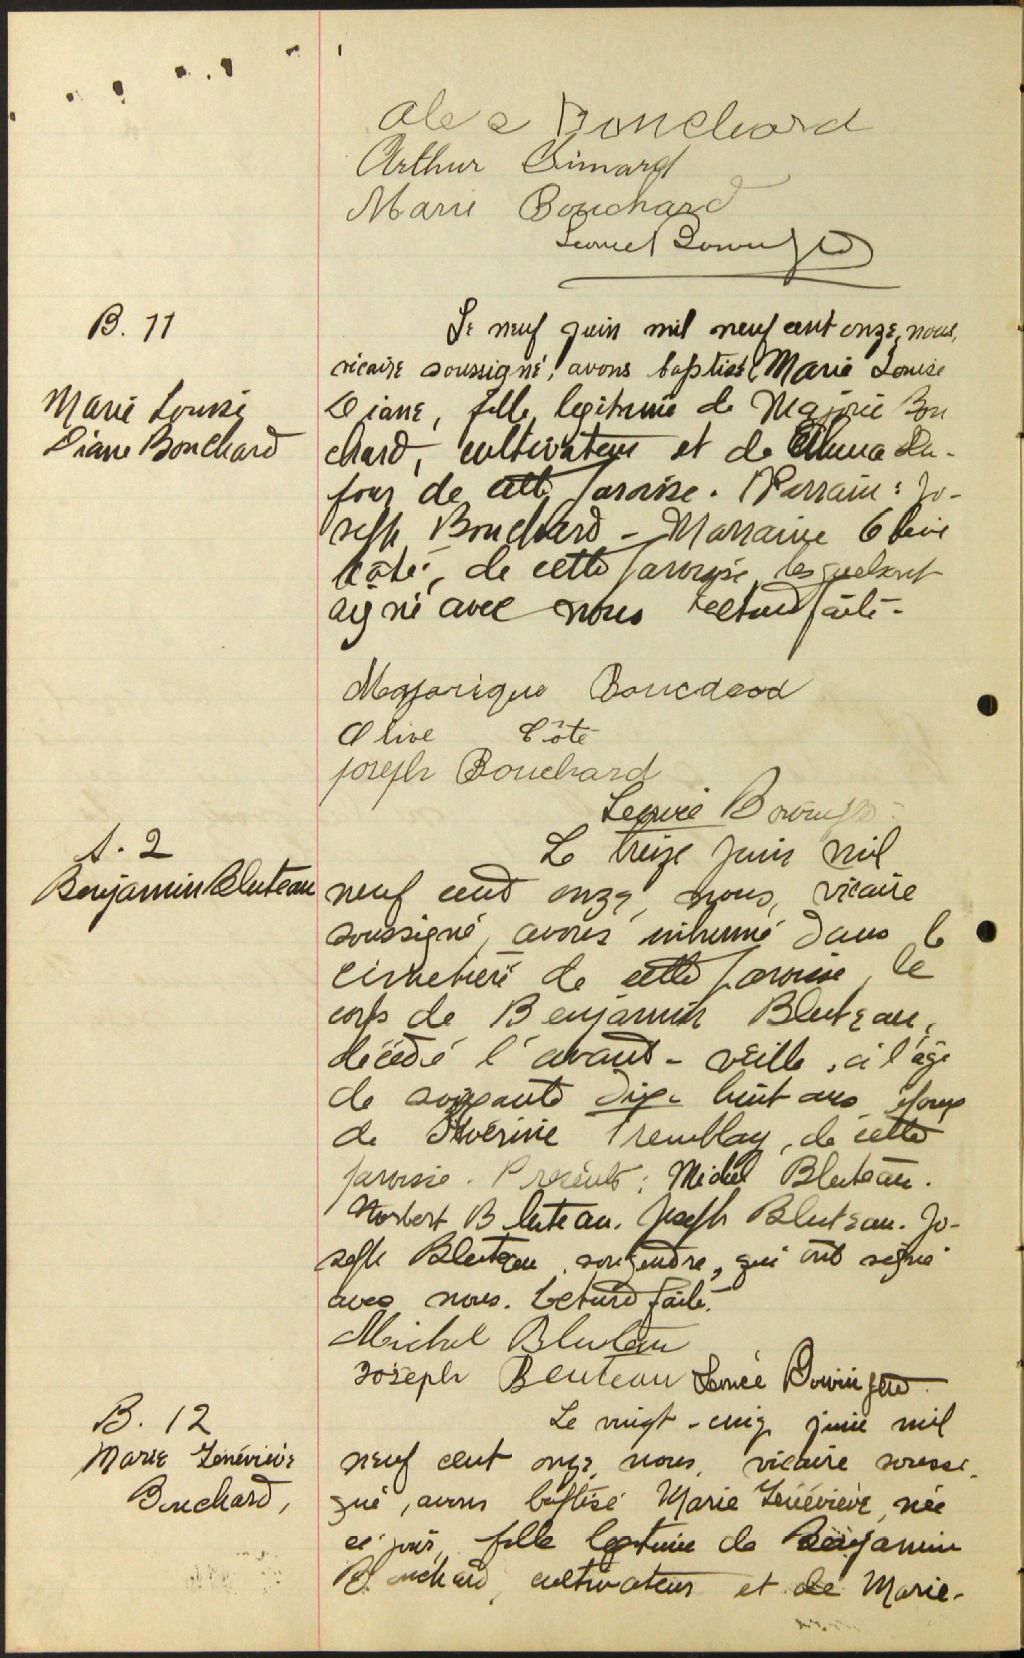 Alex Bouchard
Arthur Simard
Marie Bouchard
B. 11
Marie Louise
Diane Bouchard
Le neuf juin mil neuf cent onze, nous,
vicaire soussigné, avons baptisé Marie Louise
Diane, fille légitime de Majorie Bou
chard, cultivateur et de Alma Du-
four de cette paroisse. Parrain: Jo-
seph Bouchard - Marraine Olive
Côté, de cette paroisse, lesquels ont
signé avec nous Lecture faite -
Majorique Boucdeod
Olive Côté
Joseph Bouchard
S. 2
Benjamin Bluteau
Le treize juin mil
neuf cent onze, nous, vicaire
soussigné, avons inhumé dans le
cimetière de cette paroisse, le
corps de Benjamin Bluteau,
décédé l'avant-veille, à l'âge
de soixante dix-huit ans époux
de Séverine Tremblay, de cette
paroisse. Présents: Michel Bluteau.
Norbert Bluteau. Joseph Bluteau. Jo-
seph Bluteau, son gendre, qui ont signé
avec nous. Lecture faite.
Michel Bluteau
Joseph Beuteau
B. 12
Marie Geneviève
Bouchard,
Le vingt-cinq juin mil
neuf cent onze, nous, vicaire soussi-
gné, avons baptisé Marie Geneviève, née
ce jour, fille légitime de Benjamin
Bouchard, cultivateur et de Marie-